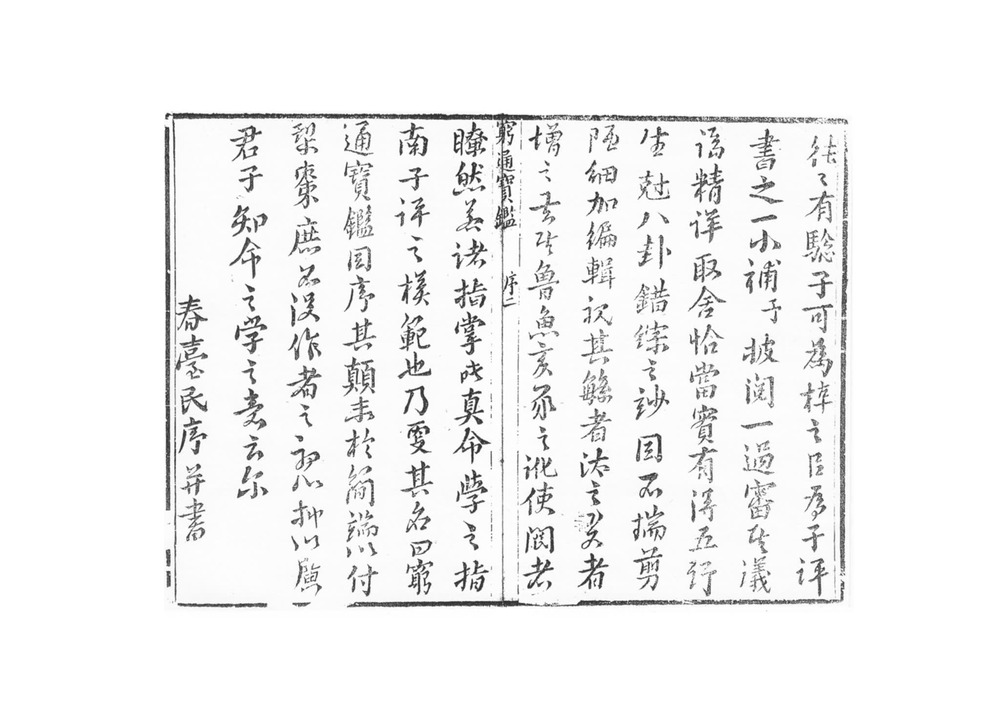 往往有驗子可為梓之臣為子評
書之一小補予披閱一過審其議
論精詳取舍恰當實有得五行
生尅八卦錯綜之妙因不揣剪
陋細加編輯視其繇者汰之略者
增之去其魯魚亥豕之訛使閱者
窮通寶鑑
序二
瞭然若諸指掌此真命學之指
南子評之模範也乃更其名曰窮
通寶鑑因序其顛末於簡端以付
梨棗庶不没作者之初心抑以廣
君子知命之學之意云尔
春臺民序并書